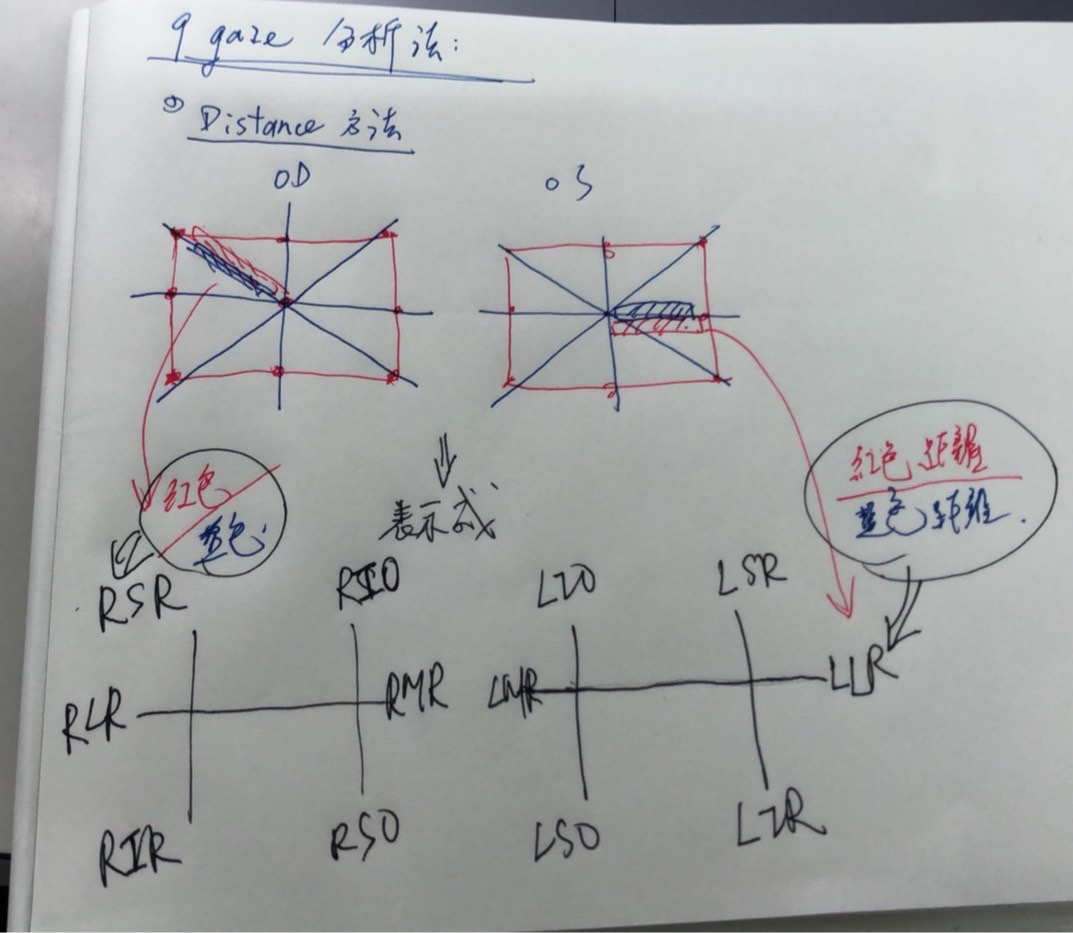 9 gaze 分析法:
① Distance 方法
OD
OS
红色
蓝色.
表示式
红色距离
蓝色距离.
RSR
RIO
LIO
LSR
RLR
RMR
LMR
LLR
RIR
RSO
LSO
LIR